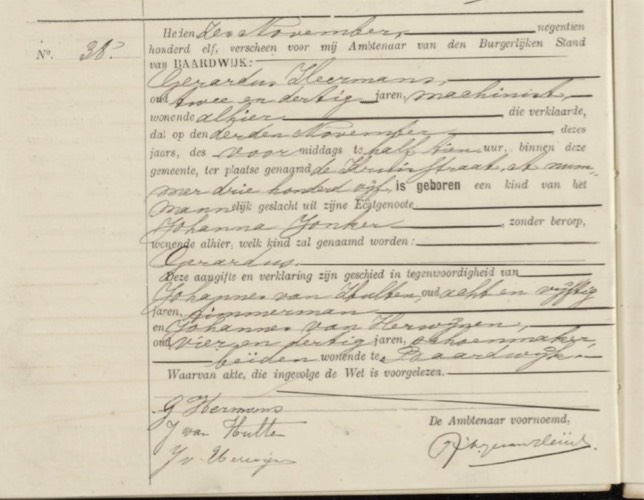 Nº. 38. Heden den November, negentien
honderd elf, verscheen voor mij Ambtenaar van den Burgerlijken Stand
van BAARDWIJK:
Gerardus Heermans,
oud twee en dertig jaren, machinist,
wonende alhier die verklaarde,
dat op den derden November, dezes
jaars, des voor middags te half tien uur, binnen deze
gemeente, ter plaatse genaamd de straat, num-
mer drie honderd vijf, is geboren een kind van het
mannelijk geslacht uit zijne Echtgenoote
Johanna Jonker zonder beroep,
wonende alhier, welk kind zal genaamd worden:
Gerardus.
Deze aangifte en verklaring zijn geschied in tegenwoordigheid van
Johannes van Hulten, oud acht en vijftig
jaren, timmerman
en Johannes van Herwijnen,
oud vier en dertig jaren, schoenmaker,
beiden wonende te Baardwijk.
Waarvan akte, die ingevolge de Wet is voorgelezen.
G Hermans
J van Hulten
J v. Herwijn
De Ambtenaar voornoemd,